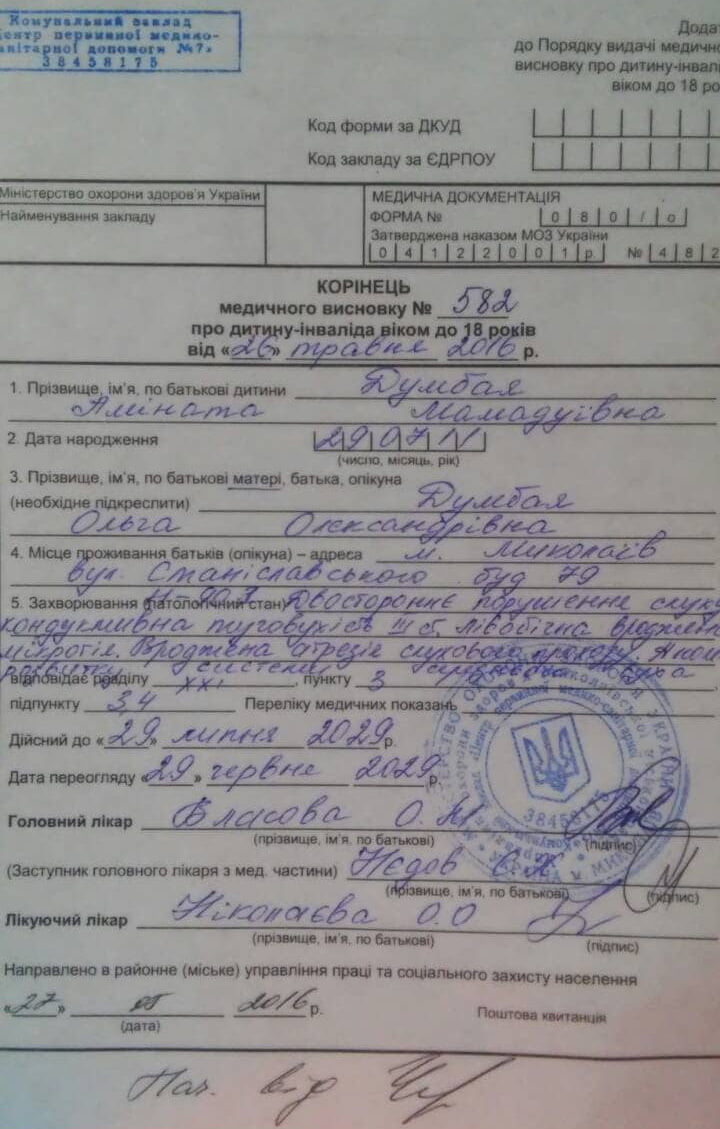 Комунальний заклад
Центр первинної медико-
санітарної допомоги №7»
38458175
Додат
до Порядку видачі медично
висновку про дитину-інвалі
віком до 18 ро
Код форми за ДКУД
Код закладу за ЄДРПОУ
Міністерство охорони здоров'я України
Найменування закладу
МЕДИЧНА ДОКУМЕНТАЦІЯ
ФОРМА № 080/о
Затверджена наказом МОЗ України
04122001р. № 482
КОРІНЕЦЬ
медичного висновку № 582
про дитину-інваліда віком до 18 років
від «26» травня 2016 р.
1. Прізвище, ім'я, по батькові дитини Думбая
Аміната Мамадуївна
2. Дата народження 290711
(число, місяць, рік)
3. Прізвище, ім'я, по батькові матері, батька, опікуна
(необхідне підкреслити) Думбая
Ольга Олександрівна
4. Місце проживання батьків (опікуна) – адреса м. Миколаїв
вул. Станіславського буд 79
5. Захворювання (патологічний стан) Двостороннє порушення слуху
кондуктивна туговухість III ст. Лівобічна вроджена
мікротія. Вроджена атрезія слухового проходу. Аном
розвитку системи
відповідає розділу XXI, пункту 3
підпункту 3,4 Переліку медичних показань
Дійсний до «29» липня 2029р.
Дата переогляду «29» червня 2029р.
Головний лікар Власова О.М.
(прізвище, ім'я, по батькові) (підпис)
(Заступник головного лікаря з мед. частини) Нєдов
(прізвище, ім'я, по батькові) (підпис)
Лікуючий лікар Ніколаєва О.О
(прізвище, ім'я, по батькові) (підпис)
Направлено в районне (міське) управління праці та соціального захисту населення
«27» 05 2016 р. Поштова квитанція
(дата)
38458175
від